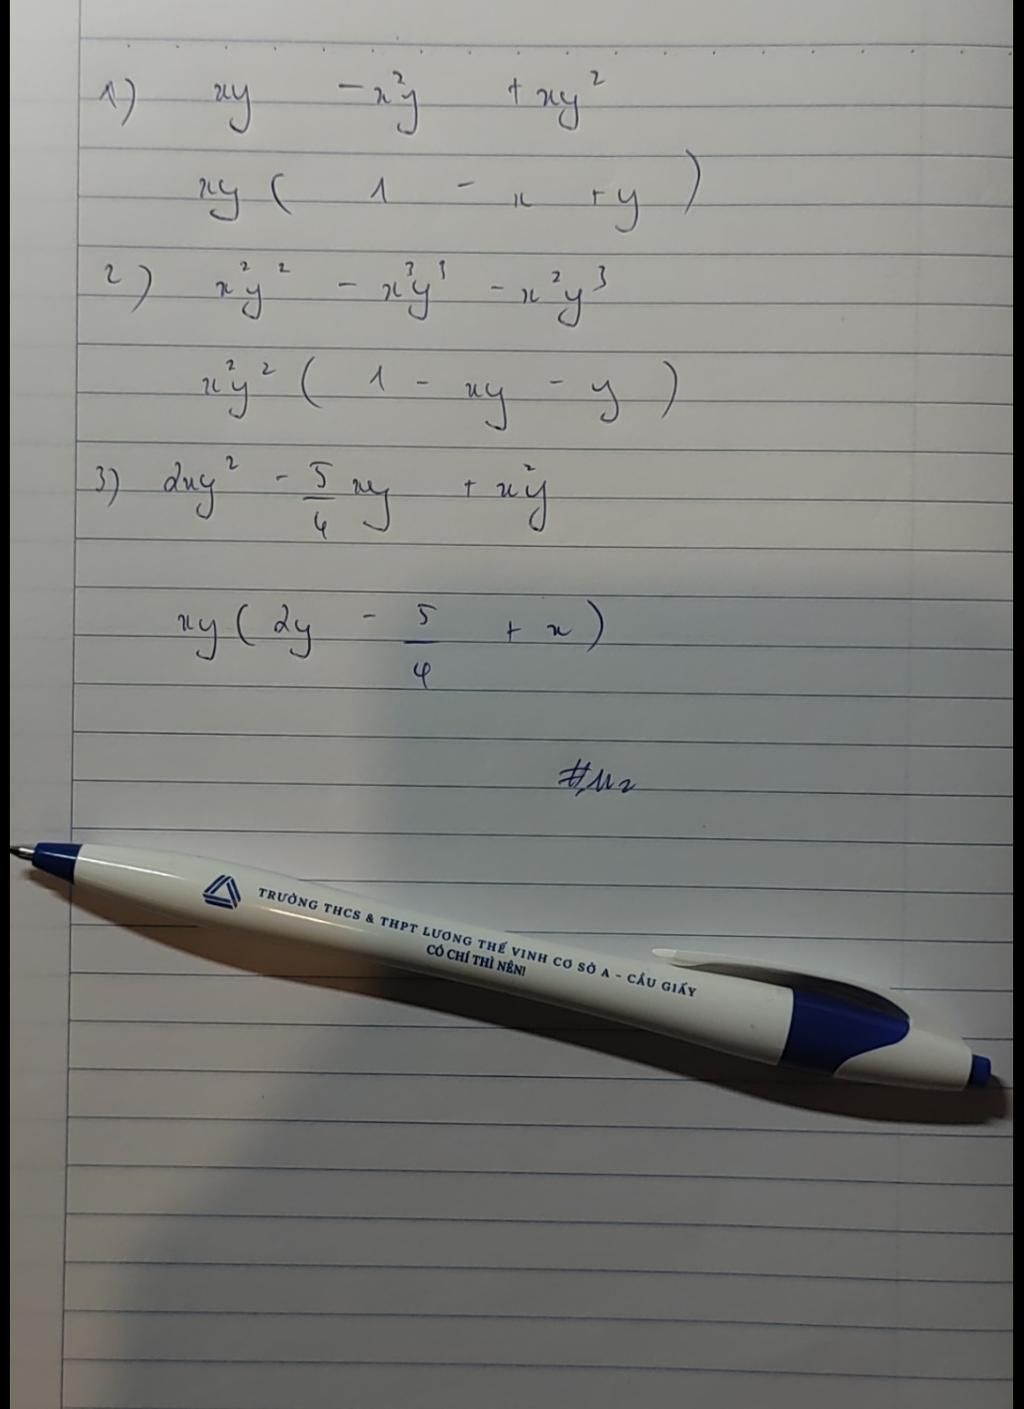 1) xy - x²y + xy²
xy ( 1 - x + y )
2) x²y² - x³y³ - x²y³
x²y² ( 1 - xy - y )
3) 2xy² - 5/4 xy + x²y
xy ( 2y - 5/4 + x )
TRƯỜNG THCS & THPT LƯƠNG THẾ VINH CƠ SỞ A - CẦU GIẤY
CÓ CHÍ THÌ NÊN!